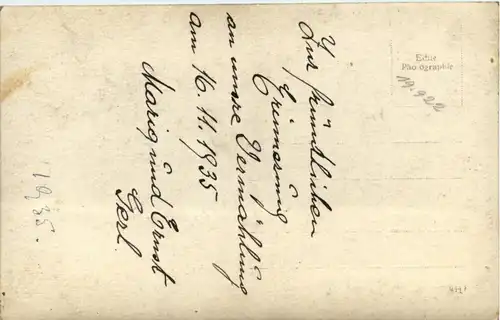 Zur freundlichen
Erinnerung
an unsre Vermählung
am 16.11.1935
Marie und Ernst
Gerl.
1935.
Echte
Photographie